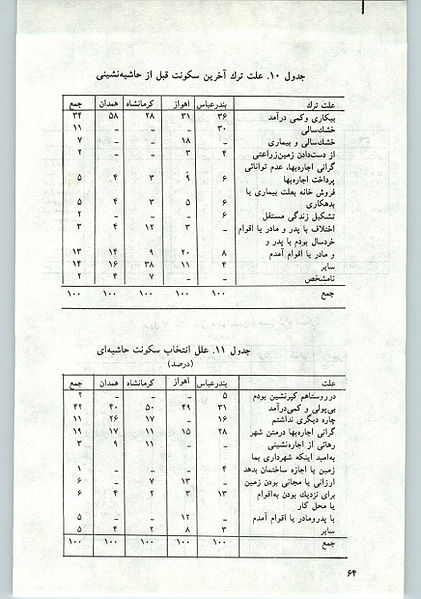 جدول ۱۰. علت ترك آخرین سکونت قبل از حاشیه‌نشینی
علت ترك بندرعباس اهواز کرمانشاه همدان جمع
بیکاری وکمی درآمد ۳۶ ۳۱ ۲۸ ۵۸ ۳۴
خشك‌سالی ۳۰ – – – ۱۱
خشك‌سالی و بیماری – ۱۸ – – ۷
از دست‌دادن زمین‌زراعتی ۴ ۳ – – ۲
گرانی اجاره‌بها، عدم توانائی
پرداخت اجاره‌بها ۶ ۹ ۳ ۴ ۵
فروش خانه بعلت بیماری یا
بدهکاری ۶ ۵ ۳ ۴ ۵
تشکیل زندگی مستقل ۶ – – – ۲
اختلاف با پدر و مادر یا اقوام – ۳ ۱۲ ۴ ۳
خردسال بودم با پدر و
و مادر یا اقوام آمدم ۸ ۲۰ ۹ ۱۴ ۱۳
سایر ۴ ۱۱ ۳۸ ۱۶ ۱۴
نامشخص – – ۷ ۴ ۲
جمع ۱۰۰ ۱۰۰ ۱۰۰ ۱۰۰ ۱۰۰
جدول ۱۱. علل انتخاب سکونت حاشیه‌ای
(درصد)
علت بندرعباس اهواز کرمانشاه همدان جمع
درروستاهم کپرنشین بودم ۵ – – – ۲
بی‌پولی و کمی‌درآمد ۳۱ ۴۹ ۵۰ ۴۰ ۴۲
چاره دیگری نداشتم ۱۶ – ۱۷ ۲۶ ۱۱
گرانی اجاره‌بها درمتن شهر ۲۸ ۱۵ ۱۱ ۱۷ ۱۹
رهائی از اجاره‌نشینی – – ۱۱ ۹ ۳
به‌امید اینکه شهرداری بما
زمین یا اجازه ساختمان بدهد ۴ – – – ۱
ارزانی یا مجانی بودن زمین – ۱۳ ۷ – ۶
برای نزدیك بودن به‌اقوام ۱۳ ۳ ۲ ۴ ۶
یا محل کار
با پدرومادر یا اقوام آمدم – ۱۲ – – ۵
سایر ۳ ۸ ۲ ۴ ۵
جمع ۱۰۰ ۱۰۰ ۱۰۰ ۱۰۰ ۱۰۰
۶۴